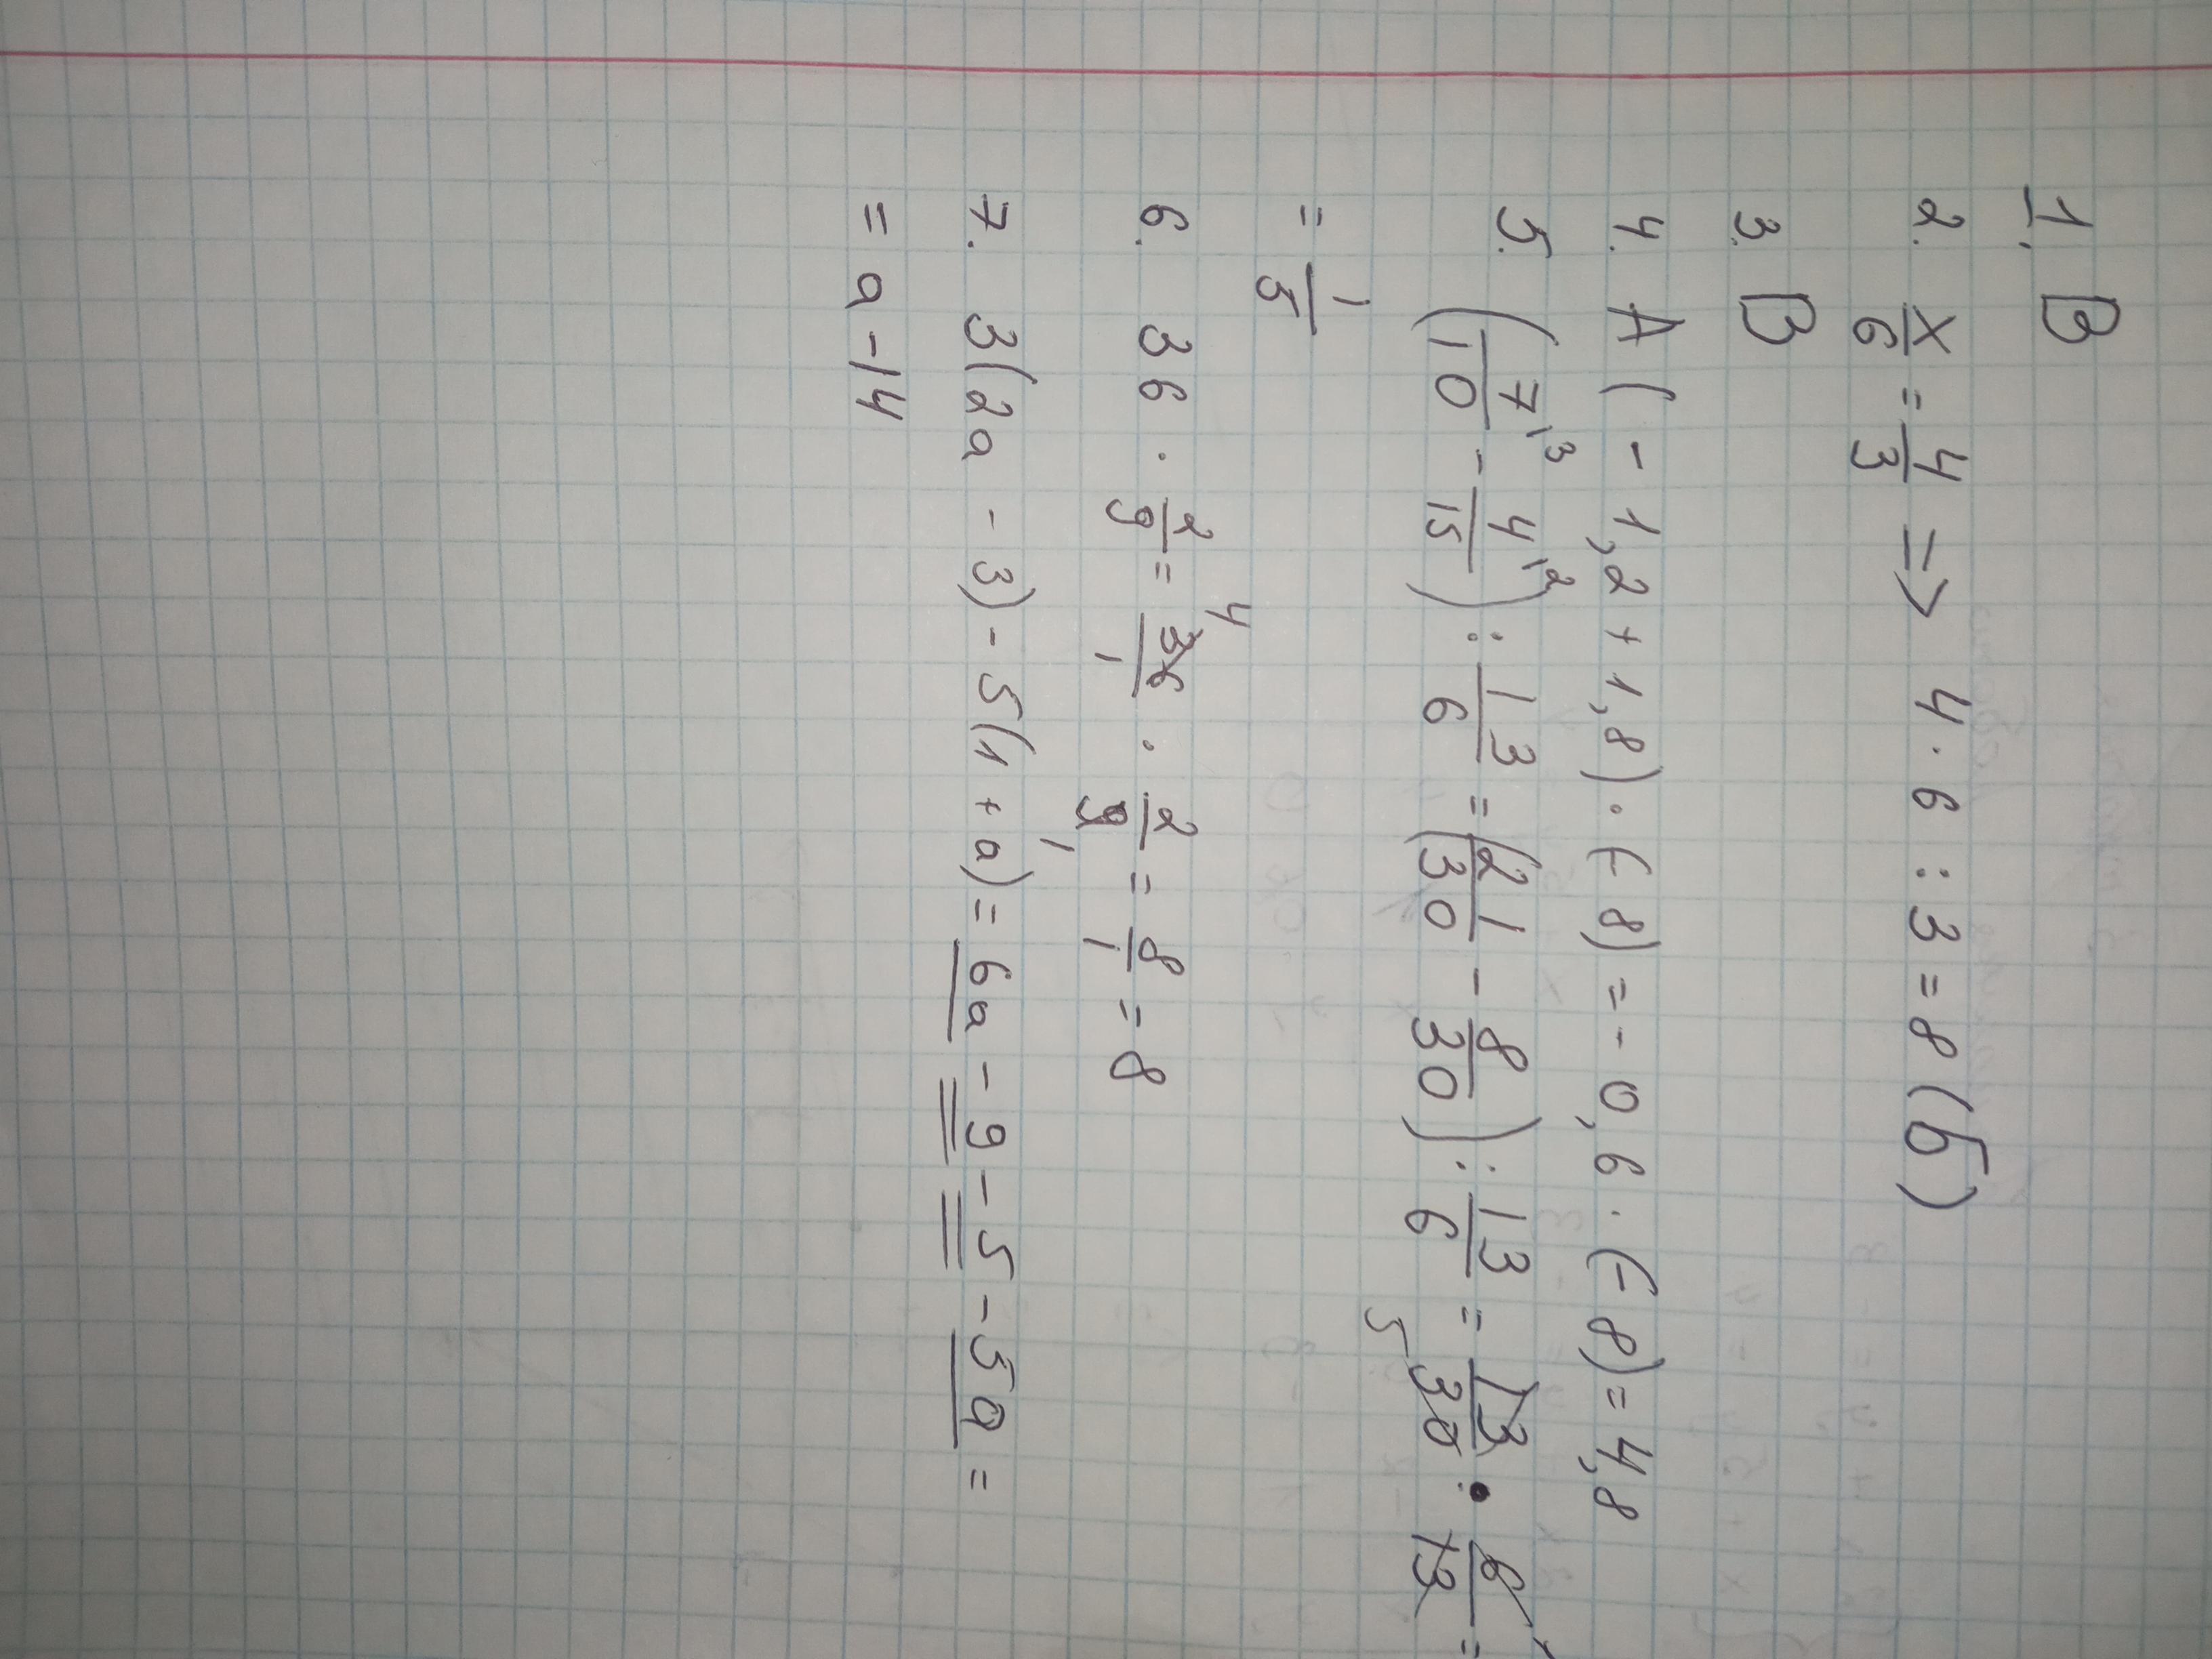 1. В
2. x/6 = 4/3 => 4 · 6 : 3 = 8 (б)
3. В
4. А (-1,2 + 1,8) · (-8) = -0,6 · (-8) = 4,8
5. (7/10 ˡ³ - 4/15 ˡ²) : 13/6 = (21/30 - 8/30) : 13/6 = 13/30 5 · 6/13 1 =
= 1/5
6. 36 · 2/9 = 4 36/1 · 2/9 1 = 8/1 = 8
7. 3(2a - 3) - 5(1 + a) = 6a - 9 - 5 - 5a =
= a - 14